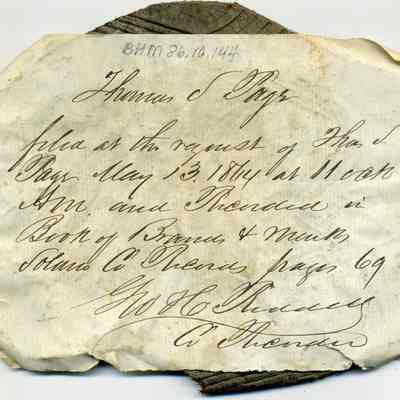 BHM 86.16.144
Thomas S Page
filed at the request of Thos S
Page May 13. 1864 at 11 oclk
AM. and Recorded in
Book of Brands & Marks
Solano Co Records pages 69
Geo H Riddell
Co Recorder